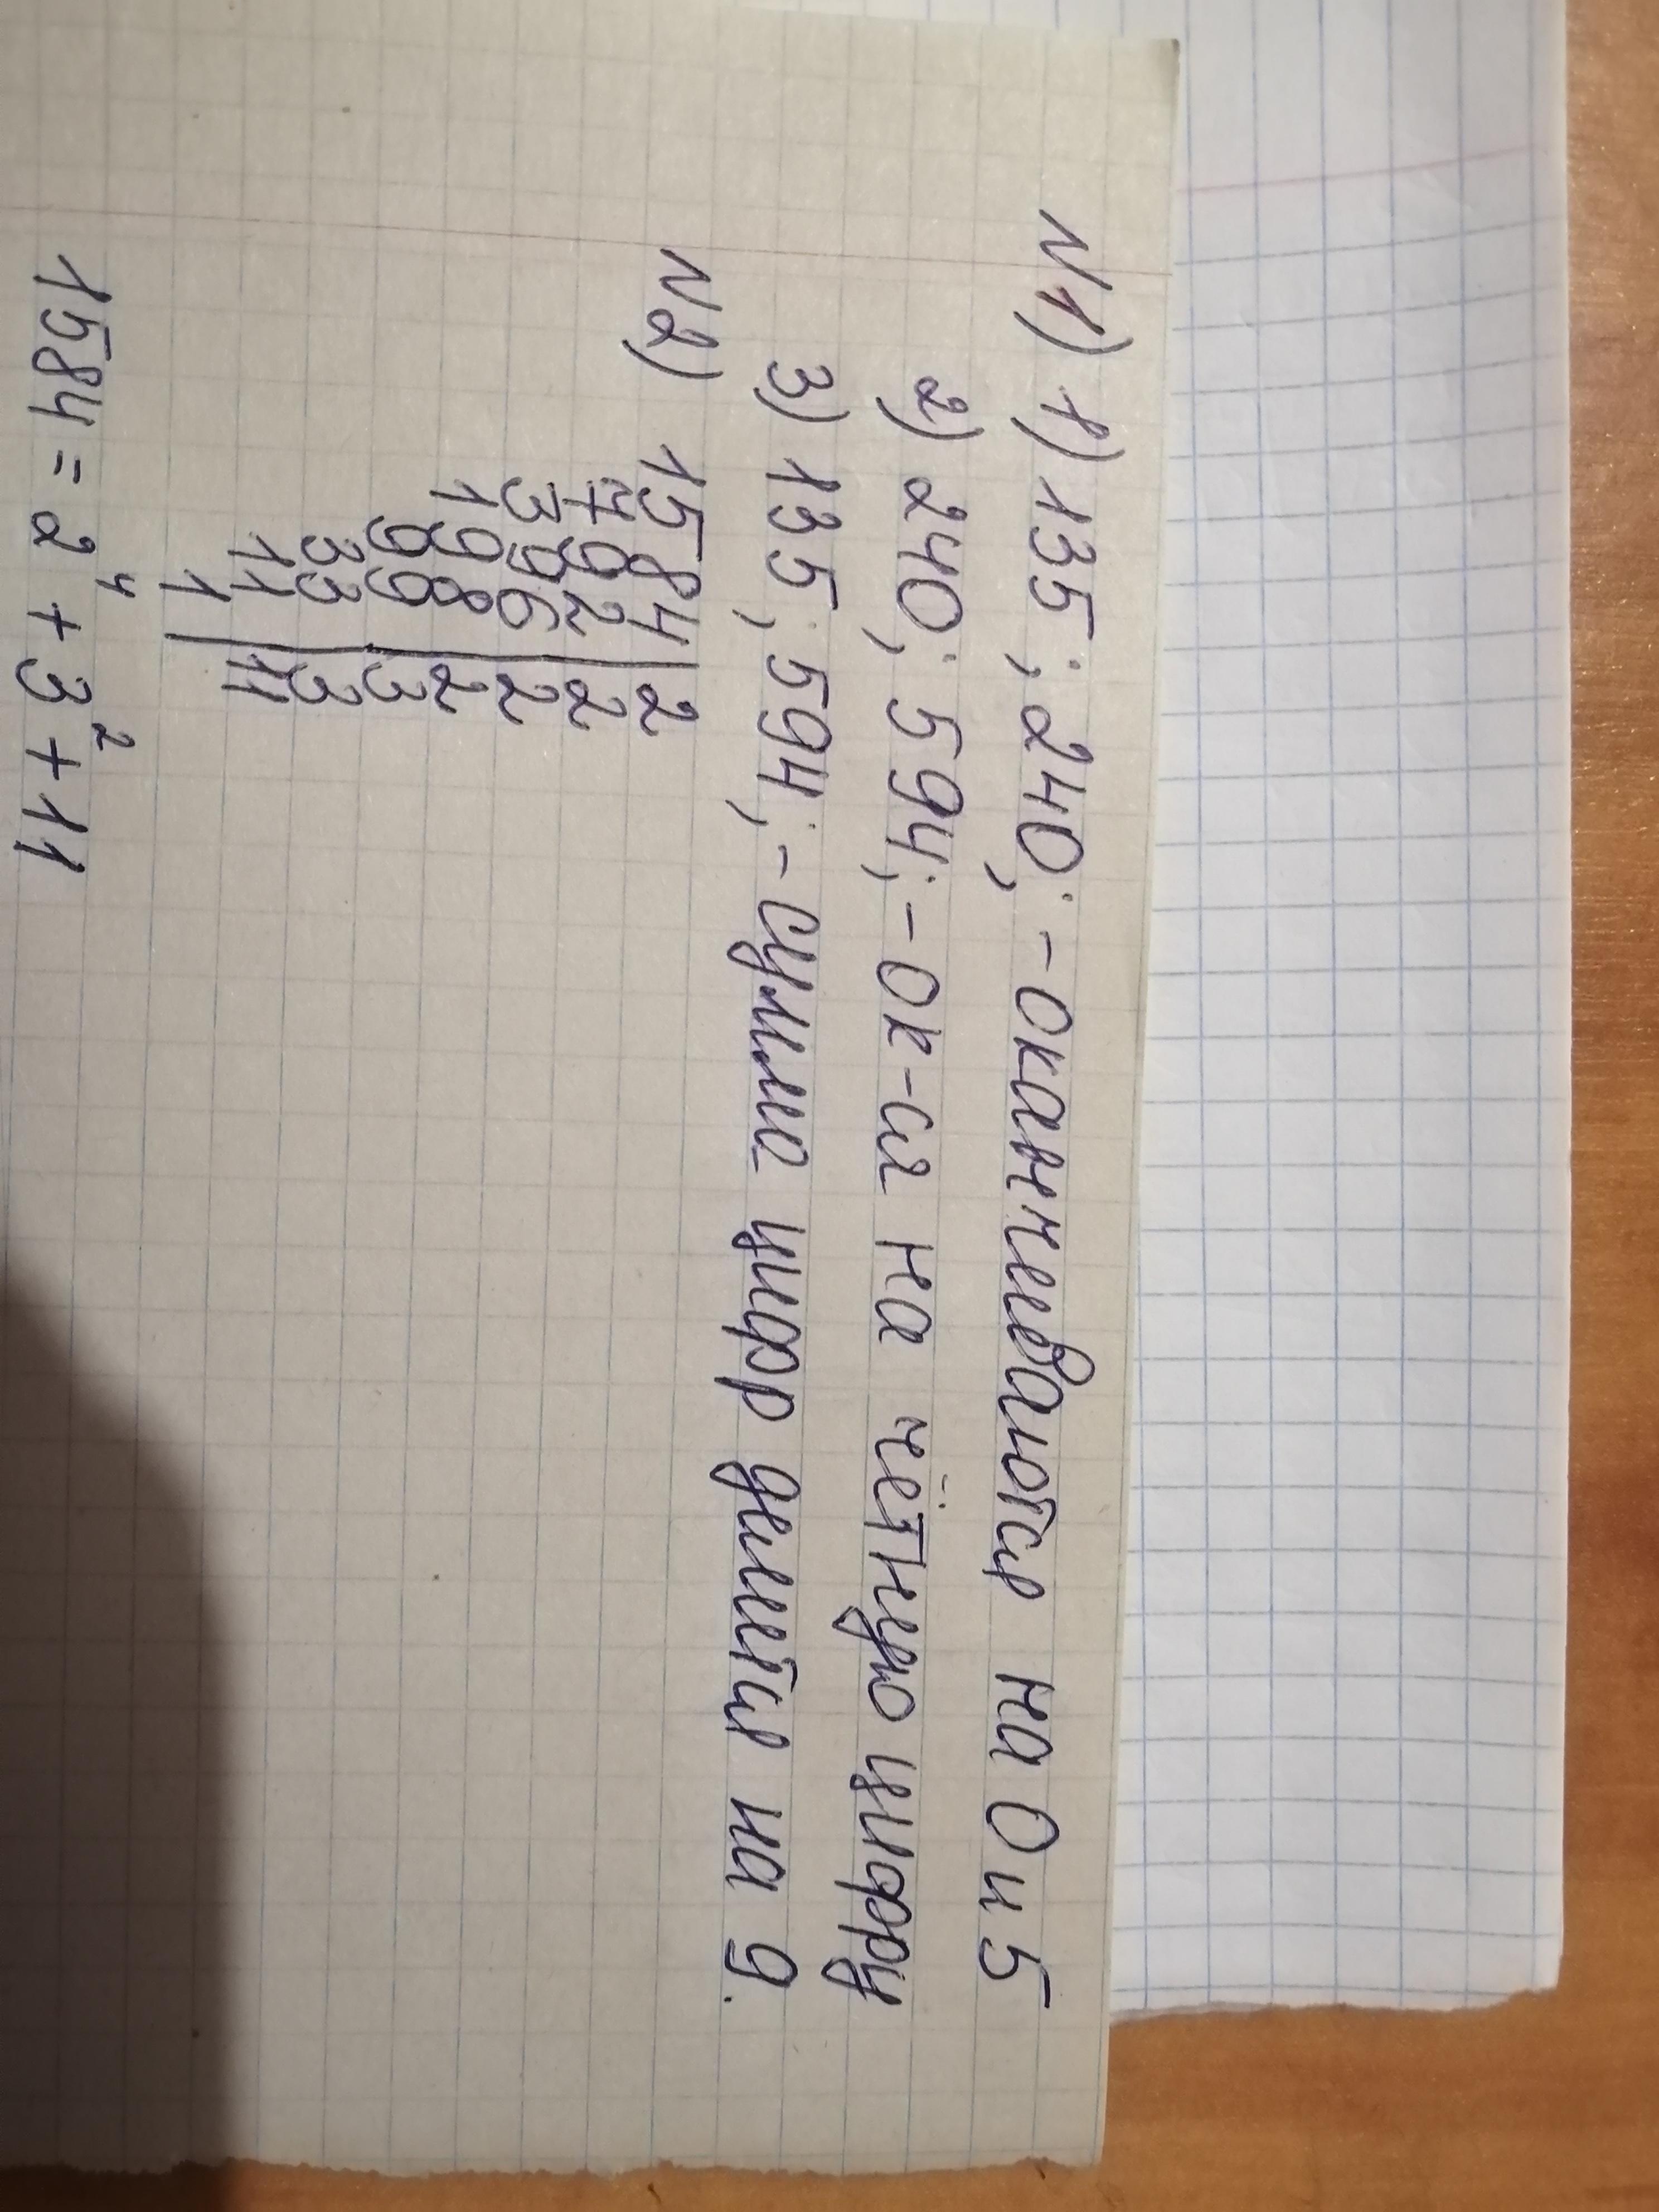 N1) 1) 135; 240; - оканчеваются на 0 и 5
2) 240; 594; - ок-ся на чётную цифру
3) 135; 594; - сумма цифр делится на 9.
N2) 1584 | 2
792 | 2
396 | 2
198 | 2
99 | 3
33 | 3
11 | 11
1
1584 = 2⁴ + 3² + 11